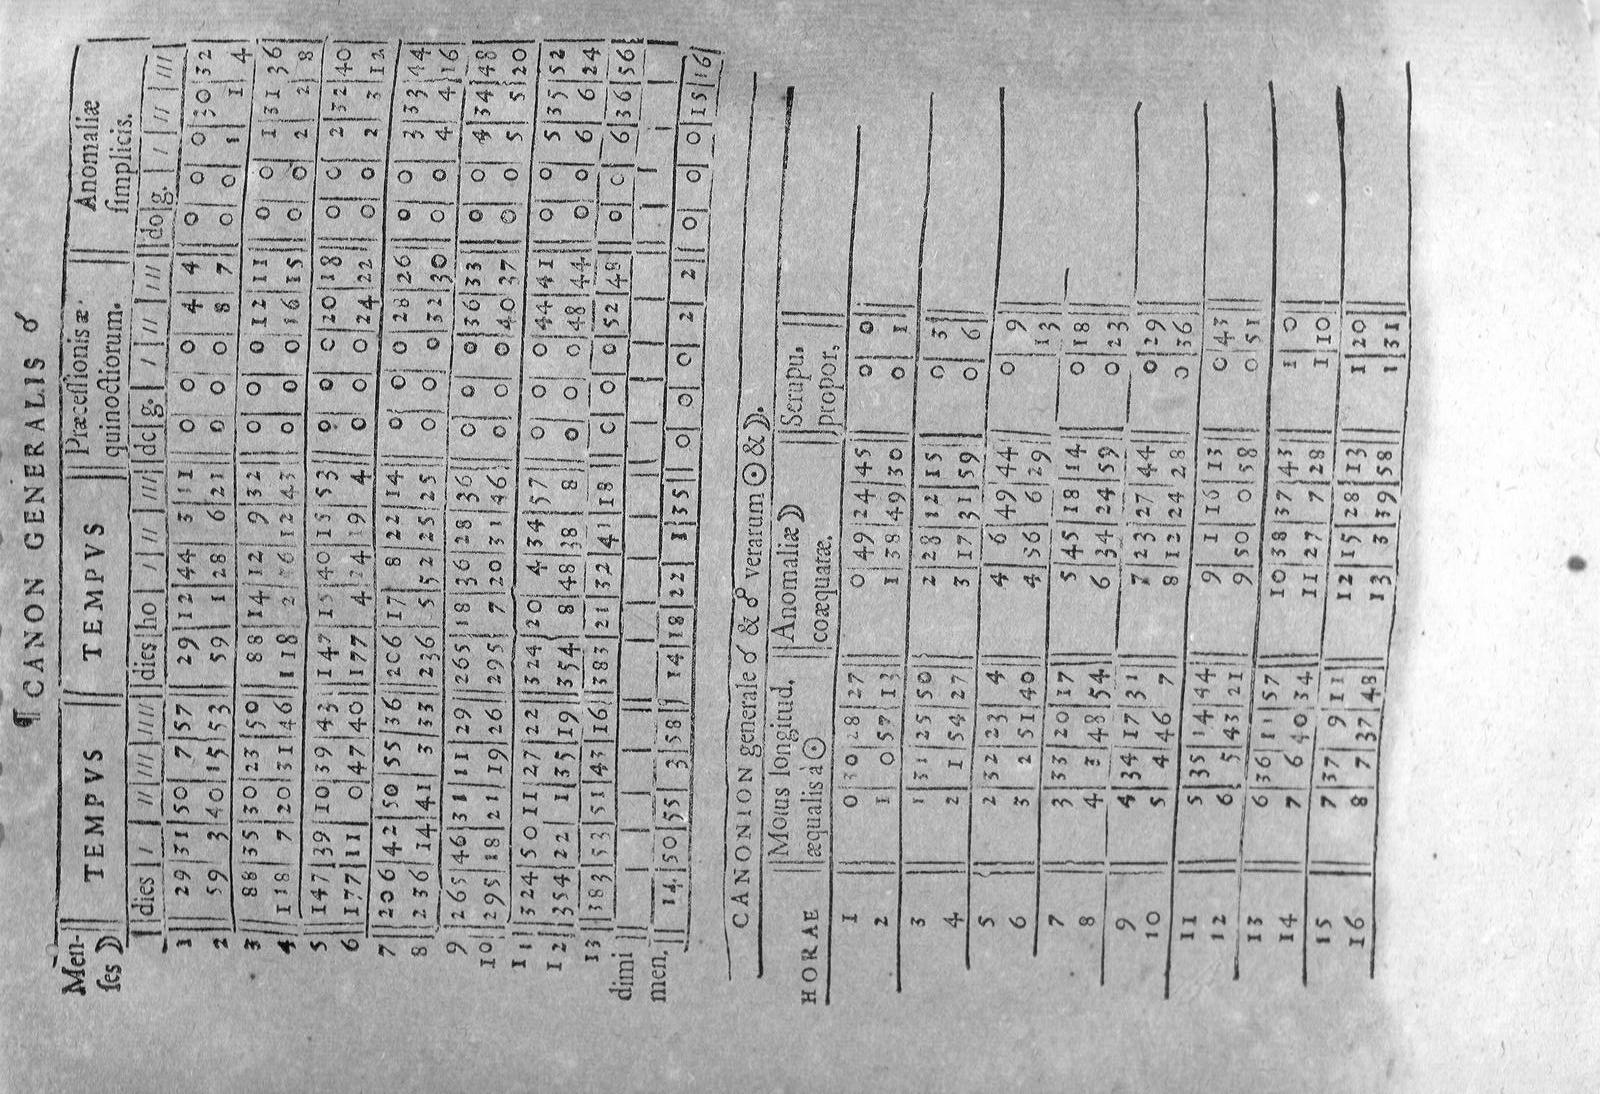 ¶ CANON GENERALIS ☌
Men- || TEMPVS || TEMPVS || Præcessionis æ- || Anomaliæ
ses ☽ quinoctiorum. simplicis.
dies / // /// //// dies ho / // /// dc g. / // /// do g. / // ///
1 29 31 50 7 57 29 12 44 3 11 0 0 0 4 4 0 0 0 30 32
2 59 3 40 15 53 59 1 28 6 21 0 0 0 8 7 0 0 1 1 4
3 88 35 30 23 50 88 14 12 9 32 0 0 0 12 11 0 0 1 31 36
4 118 7 20 31 46 118 2 56 12 43 0 0 0 16 15 0 0 2 2 8
5 147 39 10 39 43 147 15 40 15 53 0 0 0 20 18 0 0 2 32 40
6 177 11 0 47 40 177 4 24 19 4 0 0 0 24 22 0 0 2 3 12
7 206 42 50 55 36 206 17 8 22 14 0 0 0 28 26 0 0 3 33 44
8 236 14 41 3 33 236 5 52 25 25 0 0 0 32 30 0 0 4 4 16
9 265 46 31 11 29 265 18 36 28 36 0 0 0 36 33 0 0 4 34 48
10 295 18 21 19 26 295 7 20 31 46 0 0 0 40 37 0 0 5 5 20
11 324 50 11 27 22 324 20 4 34 57 0 0 0 44 41 0 0 5 35 52
12 354 22 1 35 19 354 8 48 38 8 0 0 0 48 44 0 0 6 6 24
13 383 53 51 43 16 383 21 32 41 18 0 0 0 52 48 0 0 6 36 56
dimi
men. 14 50 55 3 58 14 18 22 1 35 0 0 0 2 2 0 0 0 15 16
CANONION generale ☌ & ☍ verarum ☉ & ☽.
Motus longitud, Anomaliæ ☽ Scrupu.
HORAE æqualis à ☉ coæquatæ. propor,
1 0 30 28 27 0 49 24 45 0 0
2 1 0 57 13 1 38 49 30 0 1
3 1 31 25 50 2 28 12 15 0 3
4 2 1 54 27 3 17 31 59 0 6
5 2 32 23 4 4 6 49 44 0 9
6 3 2 51 40 4 56 6 29 13
7 3 33 20 17 5 45 18 14 0 18
8 4 3 48 54 6 34 24 59 0 23
9 4 34 17 31 7 23 27 44 0 29
10 5 4 46 7 8 12 24 28 0 36
11 5 35 14 44 9 1 16 13 0 43
12 6 5 43 21 9 50 0 58 0 51
13 6 36 11 57 10 38 37 43 1 0
14 7 6 40 34 11 27 7 28 1 10
15 7 37 9 11 12 15 28 13 1 20
16 8 7 37 48 13 3 39 58 1 31